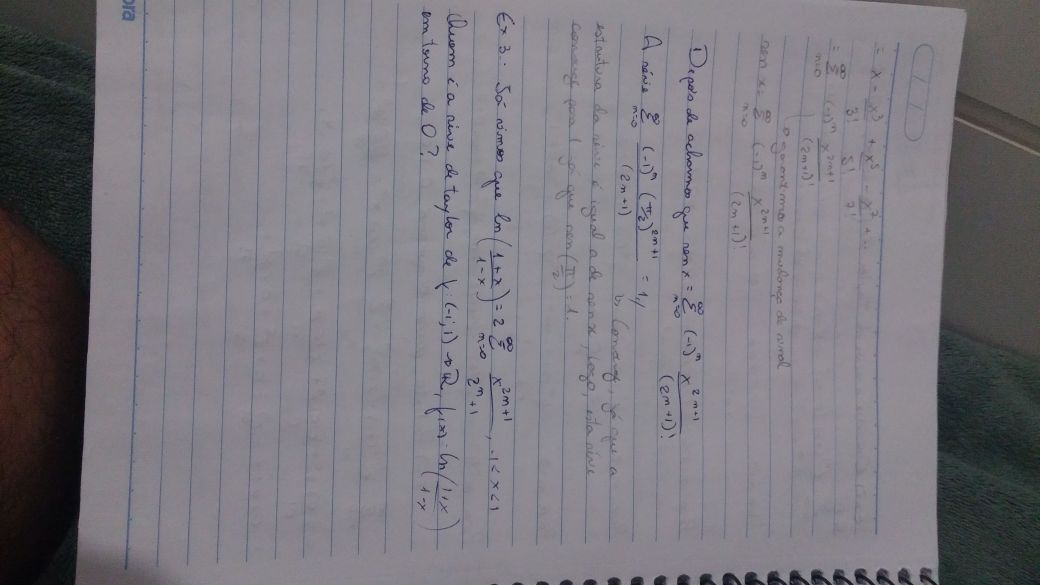 = x - x³/3! + x⁵/5! - x⁷/7! + ...
= ∞ Σ n=0 (-1)ⁿ x²ⁿ⁺¹/(2n+1)!
a mudança de sinal
sen x = ∞ Σ n=0 (-1)ⁿ x²ⁿ⁺¹/(2n+1)!
① Depois de acharmos que sen x = ∞ Σ n=0 (-1)ⁿ x²ⁿ⁺¹/(2n+1)!
A série ∞ Σ n=0 (-1)ⁿ (π/2)²ⁿ⁺¹/(2n+1) = 1,,
↳ Converge, já que a
estrutura da série é igual a de sen x, logo, esta série
converge para 1 já que sen(π/2) = 1.
Ex 3: Já vimos que ln(1+x/1-x) = 2 ∞ Σ n=0 x²ⁿ⁺¹/2ⁿ+1, -1 < x < 1
Quem é a série de taylor de f: (-1, 1) → ℝ, f(x) = ln(1+x/1-x)
em torno de 0?
ora